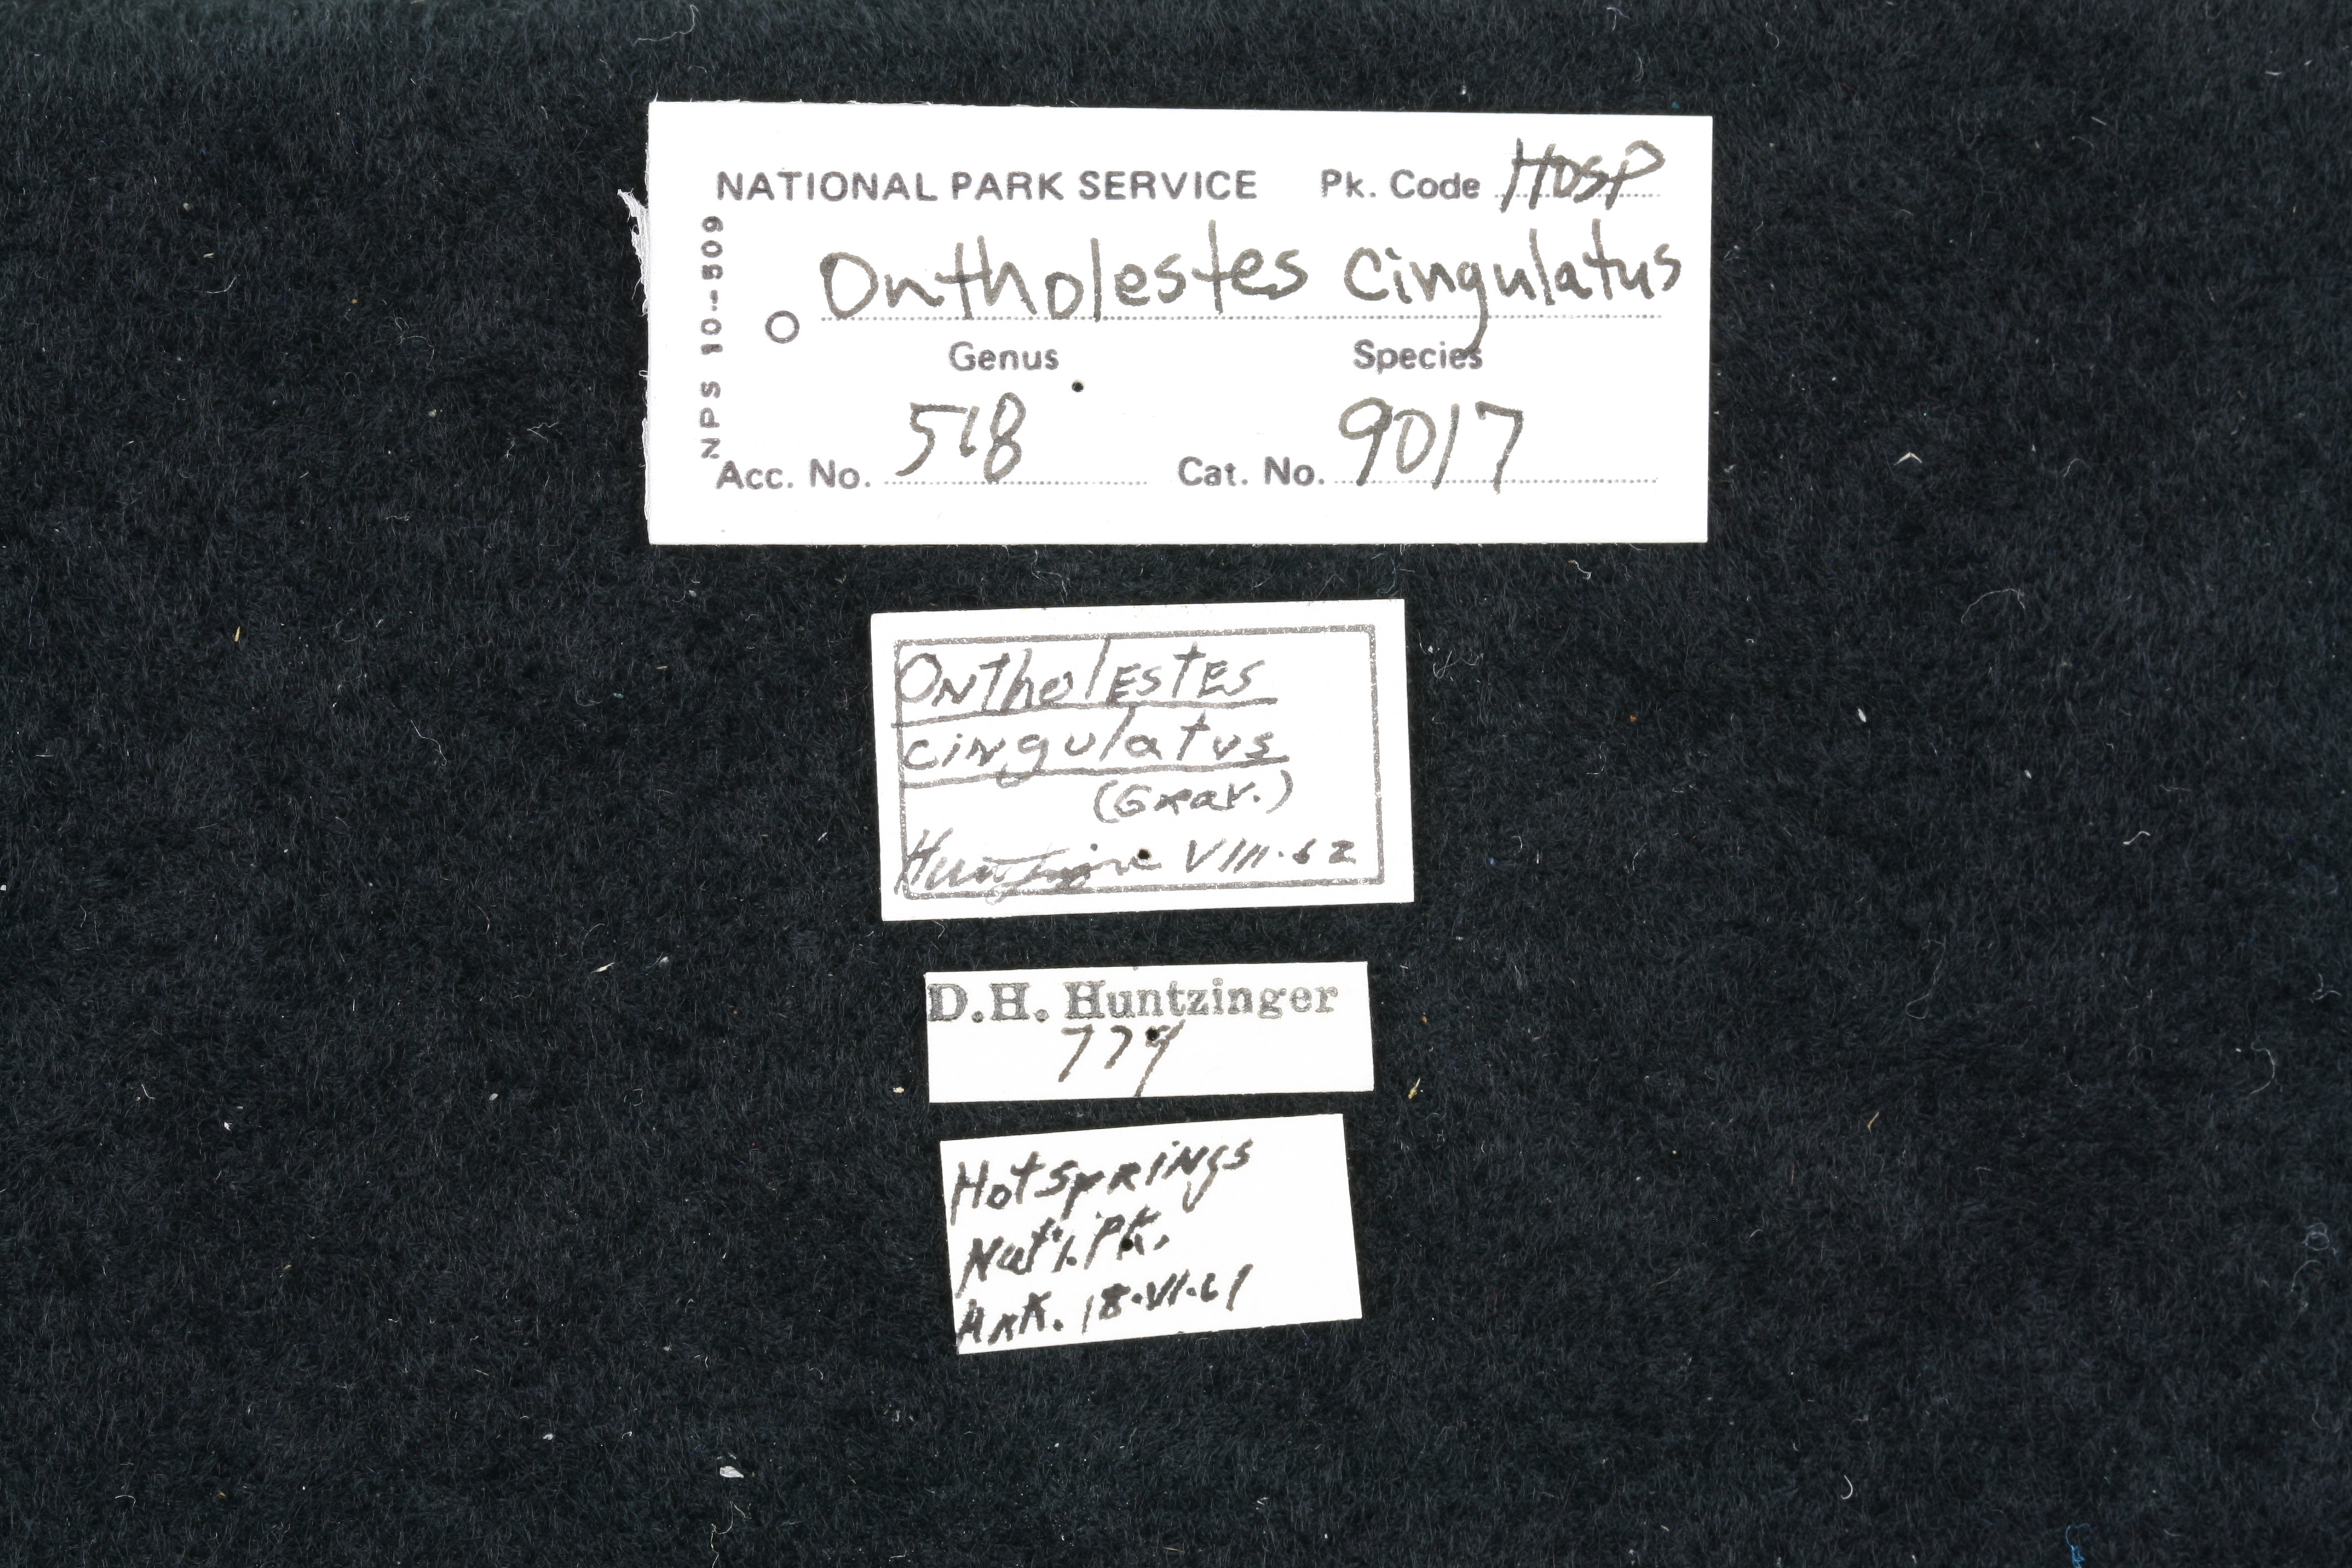 NATIONAL PARK SERVICE Pk. Code HOSP
NPS 10-509
Ontholestes cingulatus
Genus Species
Acc. No. 518 Cat. No. 9017
Ontholestes
cingulatus
(Grav.)
VIII.62
D.H. Huntzinger
774
Hot Springs
Nat'l. Pk.
Ark. 18.VI.61